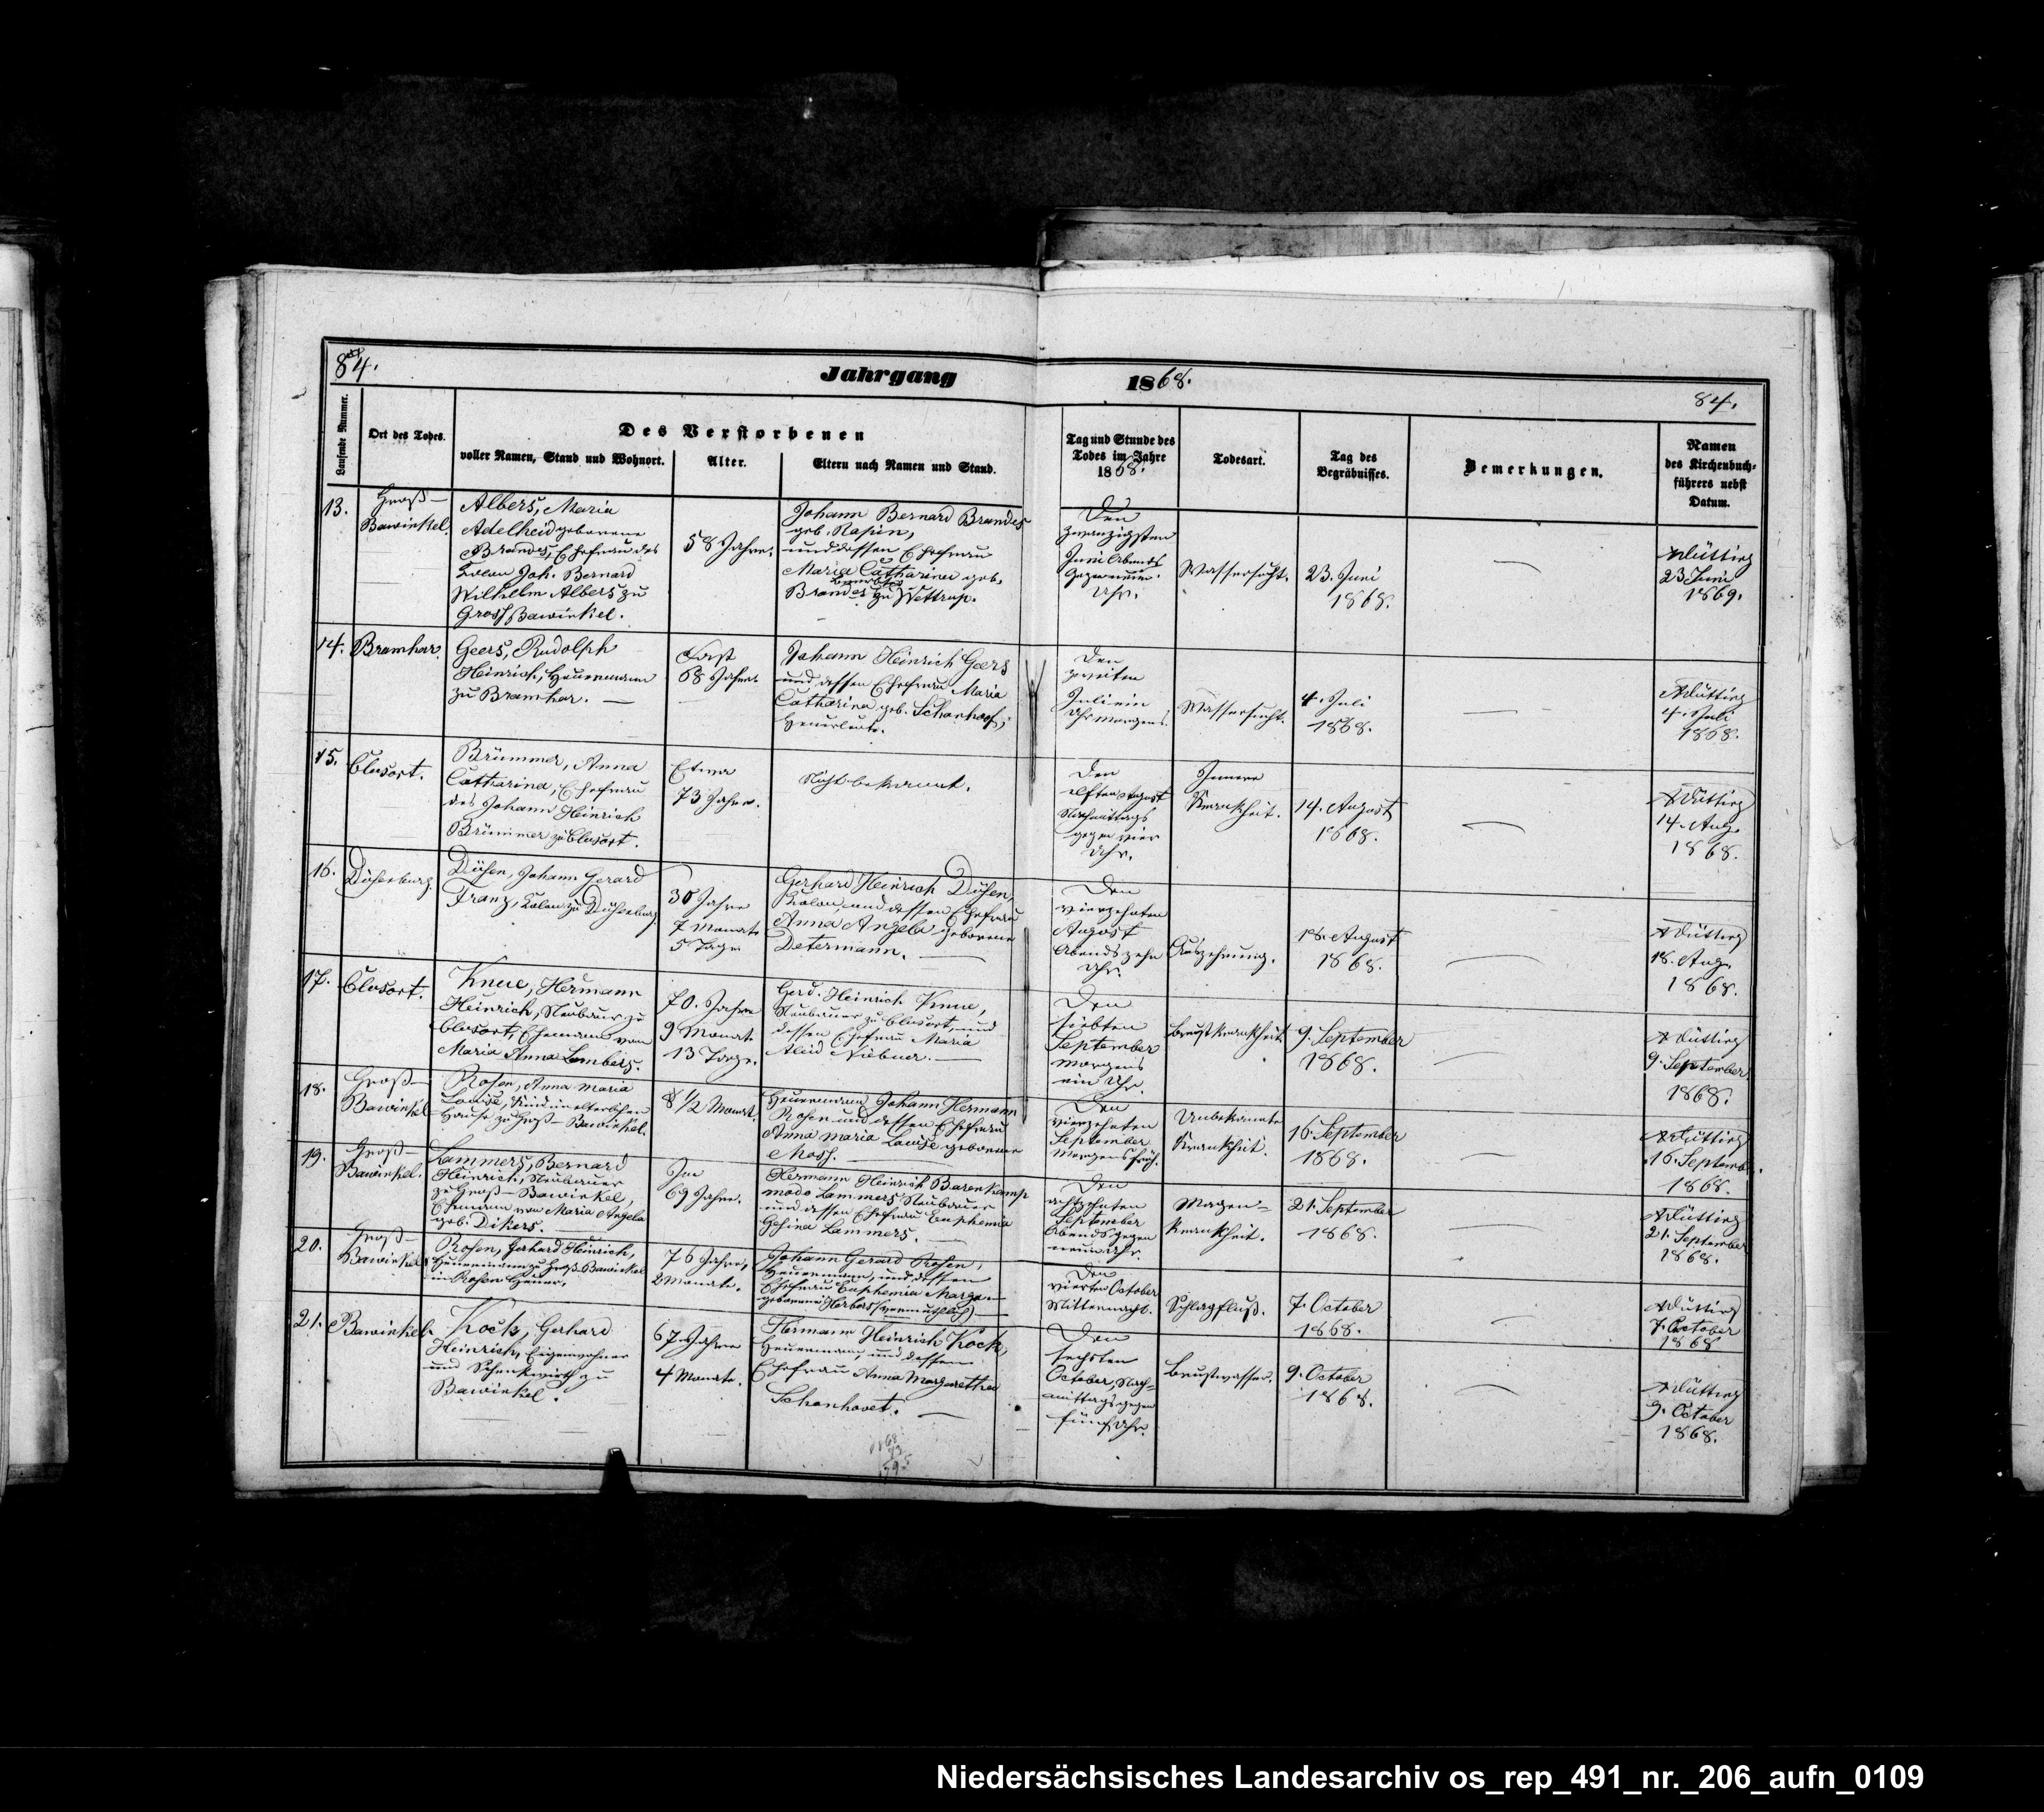 84.
Jahrgang 1868.
84.
Laufende Nummer.
Ort des Todes.
Des Verstorbenen
voller Namen, Stand und Wohnort.
Alter.
Eltern nach Namen und Stand.
Tag und Stunde des
Todes im Jahre
1868.
Todesart.
Tag des
Begräbnisses.
Bemerkungen.
Namen
des Kirchenbuch-
führers nebst
Datum.
13.
Groß-
Bawinkel.
Albers, Maria
Adelheid geborene
Brandes, Ehefrau des
Colon Joh. Bernard
Wilhelm Albers zu
Gross Bawinkel.
58 Jahre.
Johann Bernard Brandes
geb.
und dessen Ehefrau
Maria Catharina geb.
Brandes zu Wettrup.
Den
zwanzigsten
Juni Abends
gegen neun
Uhr.
Wassersucht.
23. Juni
1868.
23 Juni
1869.
14.
Bramhar.
Geers, Rudolph
Heinrich, Heuermann
zu Bramhar.
Fast
68 Jahre
Johann Heinrich Geers
und dessen Ehefrau Maria
Catharina geb. Schonhoof,
Heuerleute.
Den
zweiten
Juli ein
Uhr Morgens.
Wassersucht.
4. Juli
1868.
4. Juli
1868.
15.
Clusort.
Brümmer, Anna
Catharina, Ehefrau
des Johann Heinrich
Brümmer zu Clusort.
Etwa
73 Jahre.
Nicht bekannt.
Den
elften August
Nachmittags
gegen vier
Uhr.
Innere
Krankheit.
14. August
1868.
14. Aug.
1868.
16.
Düsenburg.
Düsen, Johann Gerard
Franz, Colon zu Düsenburg.
30 Jahre
7 Monate
5 Tage
Gerhard Heinrich Düsen,
Kolon, und dessen Ehefrau
Anna Angela geborene
Determann.
Den
vierzehnten
August
Abends zehn
Uhr.
Auszehrung.
18. August
1868.
18. Aug.
1868.
17.
Clusort.
Knue, Hermann
Heinrich, Neubauer zu
Clusort, Ehemann von
Maria Anna Lambers.
70. Jahre
9 Monate
13 Tage.
Gerd. Heinrich Knue,
Neubauer zu Clusort, und
dessen Ehefrau Maria
Aleid
Den
siebten
September
morgens
ein Uhr.
Brustkrankheit.
9. September
1868.
9. September
1868.
18.
Groß-
Bawinkel
Rosen, Anna Maria
Louise, Kind im elterlichen
Hause zu Groß-Bawinkel.
8 1/2 Monat.
Heuermann Johann Hermann
Rosen und dessen Ehefrau
Anna Maria Louise geborene
Moss.
Den
vierzehnten
September
Morgens früh.
Unbekannte
Krankheit.
16. September
1868.
16. Septemb.
1868.
19.
Groß-
Bawinkel.
Lammers, Bernard
Heinrich, Neubauer
zu Groß-Bawinkel,
Ehemann von Maria Angela
geb. Dikers.
Im
69 Jahre.
Hermann Heinrich Barenkamp
modo Lammers Neubauer
und dessen Ehefrau Euphemia
Gesina Lammers.
Den
achtzehnten
September
Abends gegen
neun Uhr.
Magen-
krankheit.
21. September
1868.
21. September
1868.
20.
Groß-
Bawinkel
Rosen, Gerhard Heinrich,
Heuermann zu Groß-Bawinkel
in Rosen Heuer.
76 Jahre,
2 Monate.
Johann Gerard Rosen,
Heuermann, und dessen
Ehefrau Euphemia Marga-
geborene Herbers
Den
vierten October
Mitternacht.
Schlagfluß.
7. October
1868.
7. October
1868
21.
Bawinkel.
Kock, Gerhard
Heinrich, Eigenwohner
und Schenkwirth zu
Bawinkel.
67. Jahre
4 Monate.
Hermann Heinrich Kock,
Heuermann, und dessen
Ehefrau Anna Margaretha
Schonhovet.
Den
sechsten
October, Nach-
mittags gegen
fünf Uhr.
Brustwasser.
9. October
1868.
9. October
1868.
Niedersächsisches Landesarchiv os_rep_491_nr._206_aufn_0109